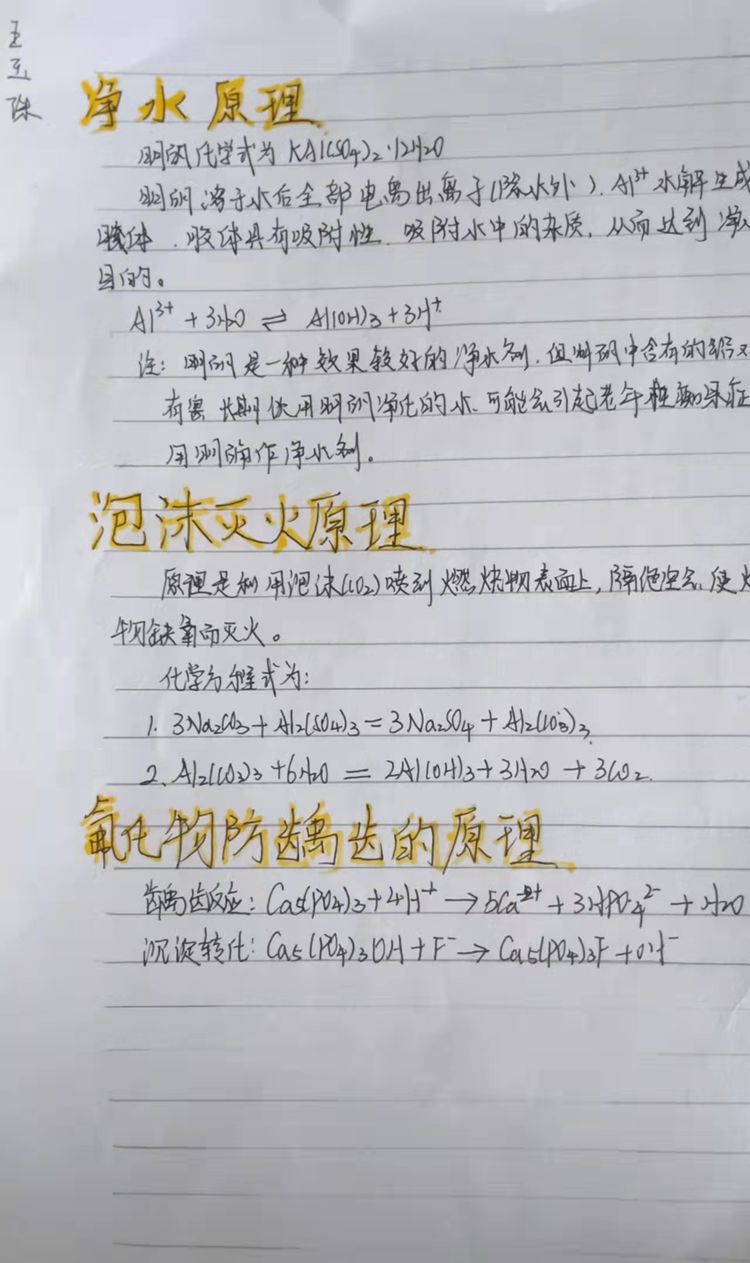 王
陈
净水原理
明矾化学式为 KAl(SO4)2·12H2O
明矾溶于水后全部电离出离子(除水外). Al³⁺水解生成
胶体.胶体具有吸附性.吸附水中的杂质,从而达到净
目的。
Al³⁺ + 3H2O ⇌ Al(OH)3 + 3H⁺
注: 明矾是一种效果较好的净水剂.但明矾中含有的铝对
有害 长期饮用明矾净化的水.可能会引起老年性痴呆症
用明矾作净水剂。
泡沫灭火原理
原理是利用泡沫(CO2)喷到燃烧物表面上,隔绝空气.使
物缺氧而灭火。
化学方程式为:
1. 3Na2CO3 + Al2(SO4)3 = 3Na2SO4 + Al2(CO3)3.
2. Al2(CO3)3 + 6H2O = 2Al(OH)3 + 3H2O + 3CO2.
氟化物防龋齿的原理
龋齿反应: Ca5(PO4)3 + 4H⁺ → 5Ca²⁺ + 3HPO4²⁻ + H2O
沉淀转化: Ca5(PO4)3OH + F⁻ → Ca5(PO4)3F + OH⁻